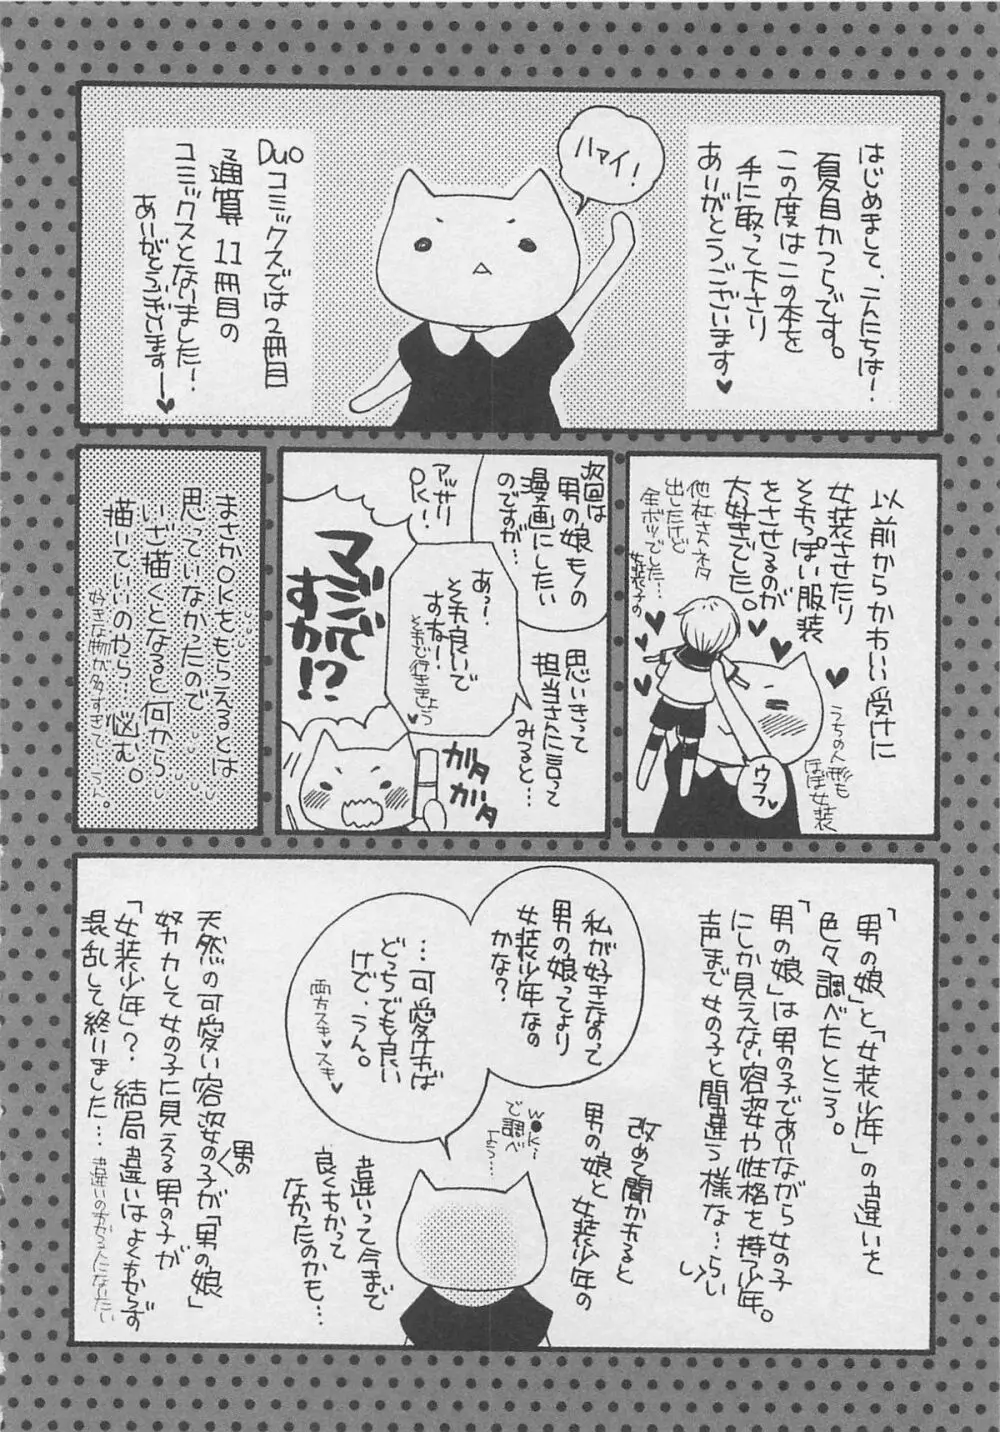 はじめまして、こんにちは!
夏目かつらです。
この度はこの本を
手に取って下さり
ありがとうございます♥
ハァイ!
Duoコミックスでは2冊目
通算11冊目の
コミックスとなりました!
ありがとうございますー♥
以前からかわい受けに
女装させたり
それっぽい服装
をさせるのが
大好きでした。
他社さんネタ
出したけど
全ボツでした…
女装子の
うちの人形も
ほぼ女装
ウフフ♥
次回は
男の娘もの
漫画にしたい
のですが…
思いきって
担当さんに言って
みると…
あっ!
それ良いで
すねー!
それで行きましょう♥
アッサリ
OK!
マジで
すか!?
ガタガタ
まさかOKをもらえるとは
思っていなかったので
いざ描くとなると何から
描いていいのやら…悩む。
好きな物が多すぎて、うん。
「男の娘」と「女装少年」の違いを
色々調べたところ。
「男の娘」は男の子でありながら女の子
にしか見えない容姿や性格を持つ少年。
声まで女の子と間違う様な…らしい
改めて聞かれると
男の娘と女装少年の
私が好きなのって
男の娘ってより
女装少年なの
かな?
…可愛ければ
どっちでも良い
けど、うん。
両方スキ♥スキ♥
w●k…
で調べ
よう…
違いって今まで
良くわかって
なかったのかも…
天然の可愛い容姿の男の子が「男の娘」
努力して女の子に見える男の子が
「女装少年」?結局違いはよくわからず
混乱して終いました…
違いのわかる人になりたい